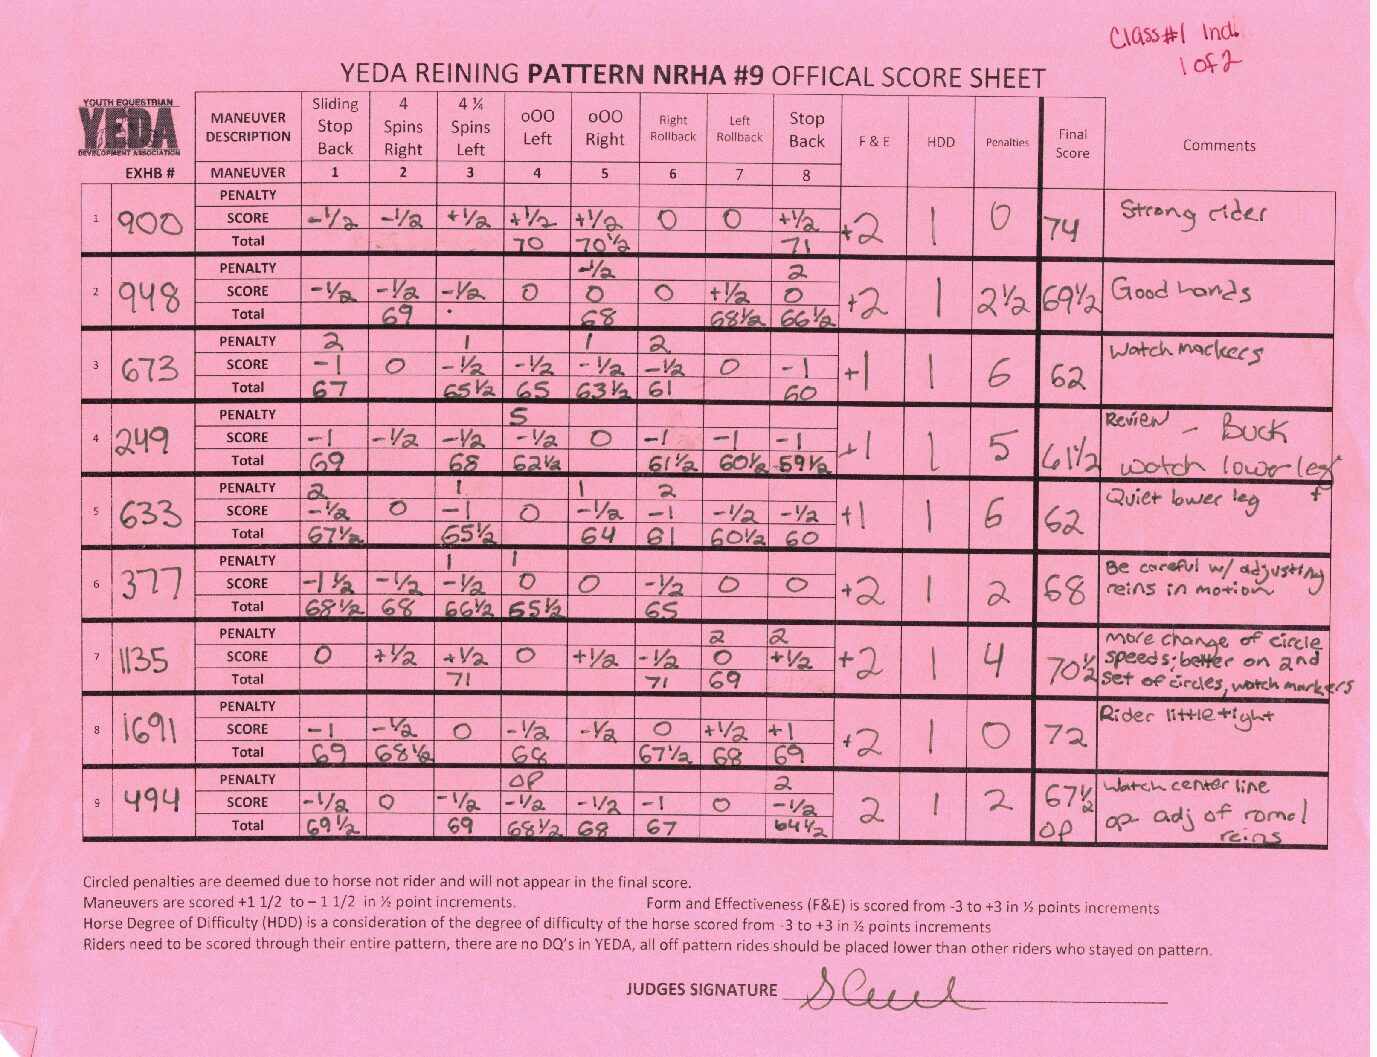 Class#1 Ind.
1 of 2
YEDA REINING PATTERN NRHA #9 OFFICAL SCORE SHEET
YOUTH EQUESTRIAN
YEDA
DEVELOPMENT ASSOCIATION
EXHB # MANEUVER DESCRIPTION Sliding Stop Back 4 Spins Right 4 ¼ Spins Left oOO Left oOO Right Right Rollback Left Rollback Stop Back F & E HDD Penalties Final Score Comments
MANEUVER 1 2 3 4 5 6 7 8
PENALTY
1 900 SCORE -1/2 -1/2 +1/2 +1/2 +1/2 0 0 +1/2 +2 1 0 74 Strong rider
Total 70 70 1/2 71
PENALTY -1/2 2
2 948 SCORE -1/2 -1/2 -1/2 0 0 0 +1/2 0 +2 1 2 1/2 69 1/2 Good hands
Total 69 68 68 1/2 66 1/2
PENALTY 2 1 1 2
3 673 SCORE -1 0 -1/2 -1/2 -1/2 -1/2 0 -1 +1 1 6 62 Watch markers
Total 67 65 1/2 65 63 1/2 61 60
PENALTY 5
4 249 SCORE -1 -1/2 -1/2 -1/2 0 -1 -1 -1 +1 1 5 61 1/2 Review - Buck
Total 69 68 62 1/2 61 1/2 60 1/2 59 1/2 watch lower leg
PENALTY 2 1 1 2 Quiet lower leg
5 633 SCORE -1/2 0 -1 0 -1/2 -1 -1/2 -1/2 +1 1 6 62
Total 67 1/2 65 1/2 64 61 60 1/2 60
PENALTY 1 1 Be careful w/ adjusting
6 377 SCORE -1 1/2 -1/2 -1/2 0 0 -1/2 0 0 +2 1 2 68 reins in motion
Total 68 1/2 68 66 1/2 65 1/2 65
PENALTY 2 2 more change of circle
7 1135 SCORE 0 +1/2 +1/2 0 +1/2 -1/2 0 +1/2 +2 1 4 70 1/2 speeds; better on 2nd
Total 71 71 69 set of circles, watch markers
PENALTY Rider little tight
8 1691 SCORE -1 -1/2 0 -1/2 -1/2 0 +1/2 +1 +2 1 0 72
Total 69 68 1/2 68 67 1/2 68 69
PENALTY OP 2 Watch center line
9 494 SCORE -1/2 0 -1/2 -1/2 -1/2 -1 0 -1/2 2 1 2 67 1/2 OP op adj of romal
Total 69 1/2 69 68 1/2 68 67 64 1/2 reins
Circled penalties are deemed due to horse not rider and will not appear in the final score.
Maneuvers are scored +1 1/2 to – 1 1/2 in ½ point increments. Form and Effectiveness (F&E) is scored from -3 to +3 in ½ points increments
Horse Degree of Difficulty (HDD) is a consideration of the degree of difficulty of the horse scored from -3 to +3 in ½ points increments
Riders need to be scored through their entire pattern, there are no DQ's in YEDA, all off pattern rides should be placed lower than other riders who stayed on pattern.
JUDGES SIGNATURE